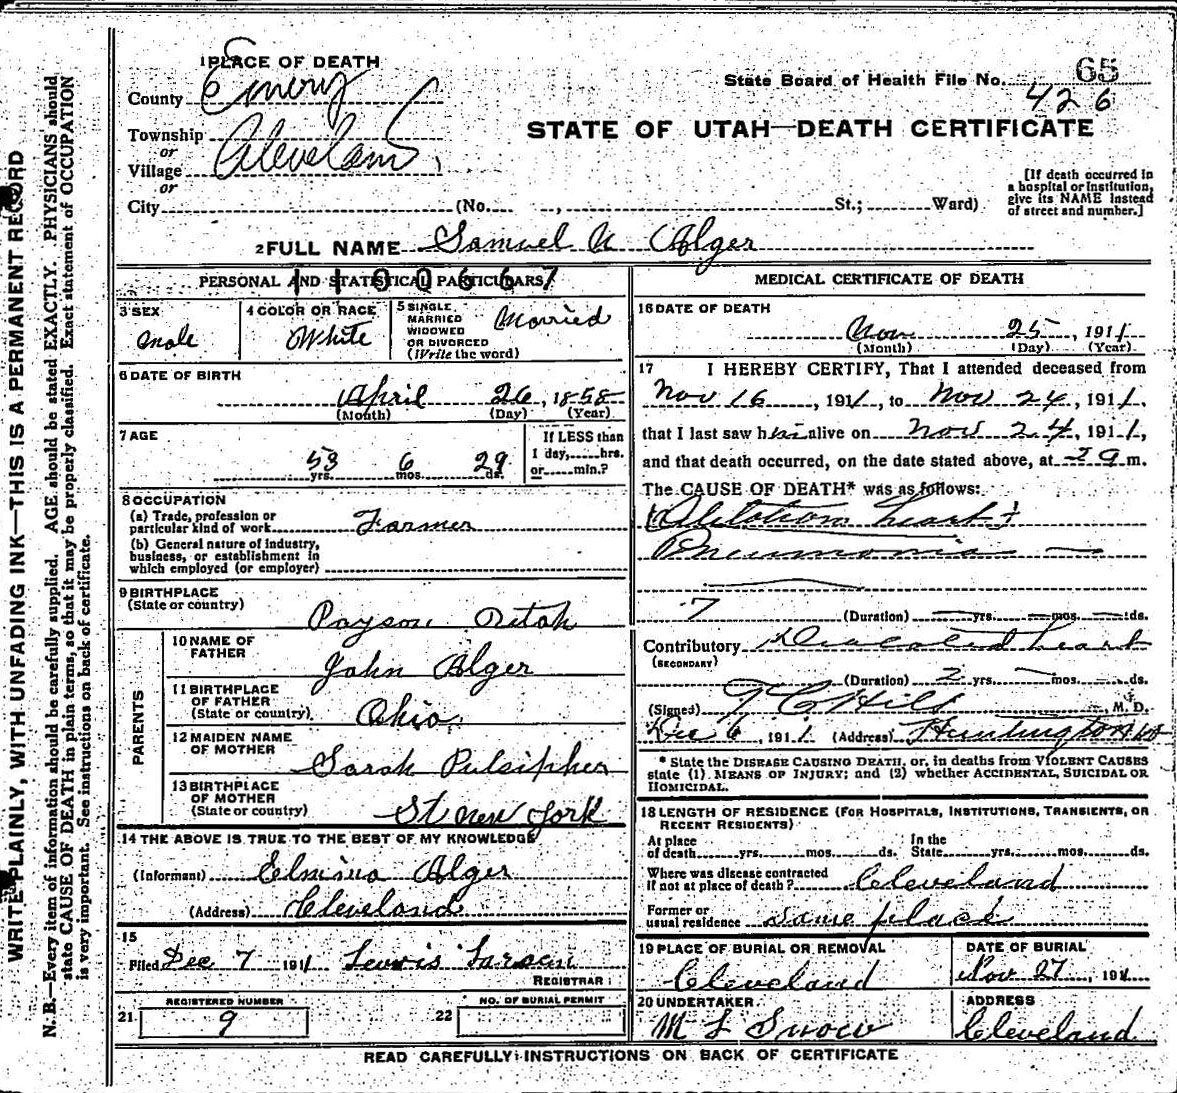 WRITE PLAINLY, WITH UNFADING INK—THIS IS A PERMANENT RECORD
N. B.—Every item of information should be carefully supplied. AGE should be stated EXACTLY. PHYSICIANS should
state CAUSE OF DEATH in plain terms, so that it may be properly classified. Exact statement of OCCUPATION
is very important. See instructions on back of certificate.
1 PLACE OF DEATH
County Emery
Township
or
Village Cleveland
or
City (No. , St.; Ward)
State Board of Health File No. 65
426
STATE OF UTAH—DEATH CERTIFICATE
[If death occurred in
a hospital or institution,
give its NAME instead
of street and number.]
2 FULL NAME Samuel N Alger
PERSONAL AND STATISTICAL PARTICULARS
1100667
3 SEX
Male
4 COLOR OR RACE
White
5 SINGLE,
MARRIED
WIDOWED
OR DIVORCED
(Write the word)
Married
6 DATE OF BIRTH
April 26, 1858
(Month) (Day) (Year)
7 AGE
53 yrs. 6 mos. 29 ds.
If LESS than
1 day, hrs.
or min.?
8 OCCUPATION
(a) Trade, profession or
particular kind of work Farmer
(b) General nature of industry,
business, or establishment in
which employed (or employer)
9 BIRTHPLACE
(State or country)
Payson Utah
PARENTS
10 NAME OF
FATHER
John Alger
11 BIRTHPLACE
OF FATHER
(State or country)
Ohio
12 MAIDEN NAME
OF MOTHER
Sarah Pulsipher
13 BIRTHPLACE
OF MOTHER
(State or country)
St New York
14 THE ABOVE IS TRUE TO THE BEST OF MY KNOWLEDGE
(Informant) Elmina Alger
(Address) Cleveland
15
Filed Dec 7 1911 Lewis Larsen
REGISTRAR
REGISTERED NUMBER
21 9
NO. OF BURIAL PERMIT
22
MEDICAL CERTIFICATE OF DEATH
16 DATE OF DEATH
Nov 25, 1911
(Month) (Day) (Year)
17 I HEREBY CERTIFY, That I attended deceased from
Nov 16, 1911, to Nov 24, 1911,
that I last saw him alive on Nov 24, 1911,
and that death occurred, on the date stated above, at m.
The CAUSE OF DEATH* was as follows:
heart +
Pneumonia
7 (Duration) yrs. mos. ds.
Contributory heart
(SECONDARY)
(Duration) 2 yrs. mos. ds.
(Signed) T C Hill M. D.
Dec 6, 1911 (Address) Huntington
* State the DISEASE CAUSING DEATH, or, in deaths from VIOLENT CAUSES
state (1) MEANS OF INJURY; and (2) whether ACCIDENTAL, SUICIDAL OR
HOMICIDAL.
18 LENGTH OF RESIDENCE (FOR HOSPITALS, INSTITUTIONS, TRANSIENTS, OR
RECENT RESIDENTS)
At place In the
of death yrs. mos. ds. State yrs. mos. ds.
Where was disease contracted
if not at place of death? Cleveland
Former or
usual residence same place
19 PLACE OF BURIAL OR REMOVAL
Cleveland
DATE OF BURIAL
Nov 27, 191
20 UNDERTAKER
M L Snow
ADDRESS
Cleveland
READ CAREFULLY INSTRUCTIONS ON BACK OF CERTIFICATE